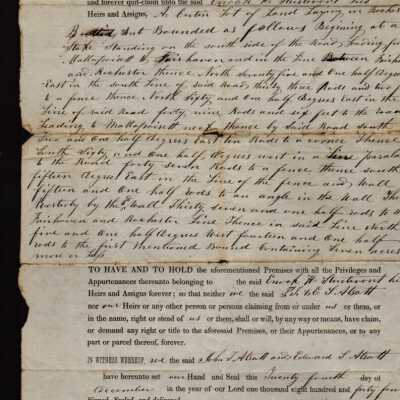 and forever quit-claim unto the said Enoch H. Sturtevant his
Heirs and Assigns, A Certin Lot of Land Laying in Rochester
But Bounded as follows Begining at a
Stake Standing on the south side of the Road, leading from
Mattapoisett to Fairhaven and in the Line Between Fairhaven
and Rochester thence North seventy five and One half degrees
East in the South Line of said Road, thirty three Rods and two
to a fence thence North Sixty and One half degrees East in the
Line of said Road forty, nine Rods and Six feet to the
Leading to Mattapoisett neck thence by Said Road South
and One half degrees East ten Rods to a corner Thence
South Sixty and One half Degrees west in a Line parallel
to the Road, forty seven Rods to a fence thence South
fifteen degrees East in the Line of the fence and Wall
fifteen and One half rods to an angle in the Wall Thence
Westerly by the Wall Thirty seven and one half rods to the
Fairhaven and Rochester Line Thence in said Line North
five and One half degrees West fourteen and One half
rods to the first mentioned Bound Containing Seven acres
more or less
TO HAVE AND TO HOLD the aforementioned Premises with all the Privileges and
Appurtenances thereunto belonging to the said Enoch H. Sturtevant his
Heirs and Assigns forever; so that neither we the said J. & E. S. Abott
nor our Heirs or any other person or persons claiming from or under us or them, or
in the name, right or stend of us or them, shall or will, by any way or means, have claim,
or demand any right or title to the aforesaid Premises, or their Appurtenances, or to any
part or parcel thereof, forever.
IN WITNESS WHEREOF, we the said John S. Abott and Edward S. Abott
have hereunto set our Hand and Seal this Twenty fourth day of
December in the year of our Lord one thousand eight hundred and forty
Signed, Sealed, and delivered